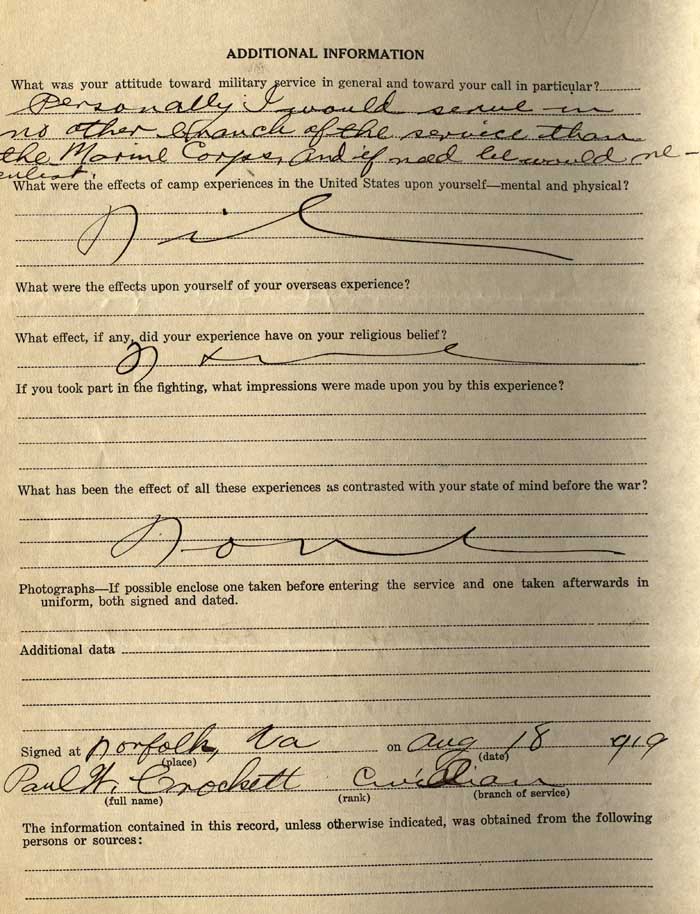 ADDITIONAL INFORMATION
What was your attitude toward military service in general and toward your call in particular?
Personally I would serve in
no other branch of the service than
the Marine Corps, and if need be would re-
enlist.
What were the effects of camp experiences in the United States upon yourself—mental and physical?
Nil
What were the effects upon yourself of your overseas experience?
What effect, if any, did your experience have on your religious belief?
None
If you took part in the fighting, what impressions were made upon you by this experience?
What has been the effect of all these experiences as contrasted with your state of mind before the war?
None
Photographs—If possible enclose one taken before entering the service and one taken afterwards in
uniform, both signed and dated.
Additional data
Signed at Norfolk, Va on Aug 18 919
(place) (date)
Paul W. Crockett Civilian
(full name) (rank) (branch of service)
The information contained in this record, unless otherwise indicated, was obtained from the following
persons or sources: